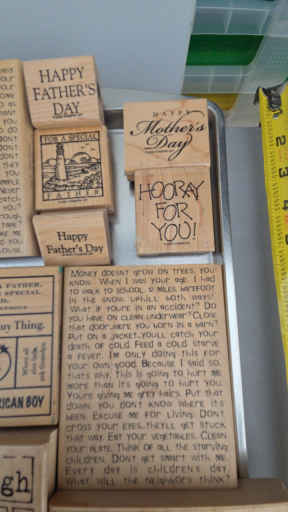 HAPPY
FATHER'S
DAY
HAPPY
Mother's
Day
FOR A SPECIAL
FATHER
HOORAY
FOR
YOU!
Happy
Father's Day
MONEY DOESN'T GROW ON TREES, YOU
KNOW. WHEN I WAS YOUR AGE, I HAD
TO WALK TO SCHOOL 12 MILES BAREFOOT
IN THE SNOW UPHILL BOTH WAYS!
WHAT IF YOU'RE IN AN ACCIDENT? DO
YOU HAVE ON CLEAN UNDERWEAR? CLOSE
THAT DOOR, WERE YOU BORN IN A BARN?
PUT ON A JACKET, YOU'LL CATCH YOUR
DEATH OF COLD. FEED A COLD STARVE
A FEVER. I'M ONLY DOING THIS FOR
YOUR OWN GOOD. BECAUSE I SAID SO,
THAT'S WHY. THIS IS GOING TO HURT ME
MORE THAN IT'S GOING TO HURT YOU.
YOU'RE GIVING ME GREY HAIRS. PUT THAT
DOWN, YOU DON'T KNOW WHERE IT'S
BEEN. EXCUSE ME FOR LIVING. DON'T
CROSS YOUR EYES, THEY'LL GET STUCK
THAT WAY. EAT YOUR VEGETABLES. CLEAN
YOUR PLATE. THINK OF ALL THE STARVING
CHILDREN. DON'T GET SMART WITH ME.
EVERY DAY IS CHILDREN'S DAY.
WHAT WILL THE NEIGHBORS THINK?
FATHER,
SPECIAL
ny Thing.
RICAN BOY
gh